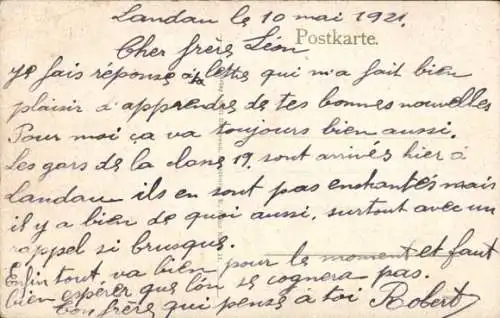 Landau le 10 mai 1921.
Postkarte.
Cher frère Léon
Je fais réponse à ta lettre qui m'a fait bien
plaisir d'apprendre de tes bonnes nouvelles
Pour moi ça va toujours bien aussi.
Les gars de la classe 19. sont arrivés hier à
Landau ils en sont pas enchantés mais
il y a bien de quoi aussi, surtout avec un
rappel si brusque.
Enfin tout va bien pour le moment et faut
bien espérer que l'on se cognera pas.
Ton frère qui pense à toi Robert